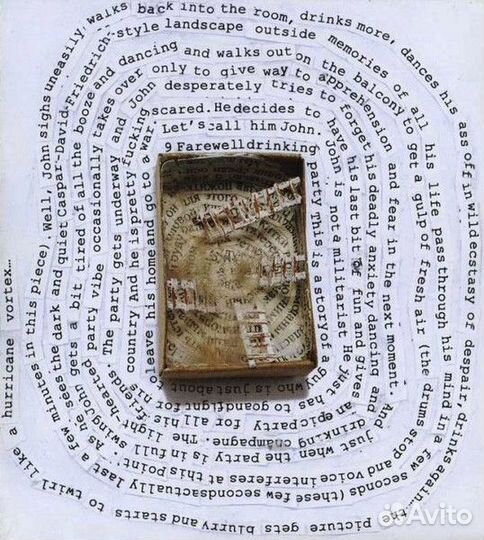 9 Farewell drinking party This is a story of a guy who is just about to leave his home and go to a war.
Let's call him John. John is not a militarist He just has to go and fight for his country And he is pretty fucking
scared. He decides to have his last bit of fun and gives an epic party for all his friends. The party gets underway and John
desperately tries to forget his deadly anxiety dancing and drinking champagne. The light-hearted party vibe occasionally takes over
only to give way to apprehension and fear in the next moment. And just when the party is in full swing John gets a bit tired of all the booze
and dancing and walks out on the balcony to get a gulp of fresh air (the drums stop and voice interferes at this point). As he sees the dark and quiet Caspar-David-Friedrich-style
landscape outside memories of all his life pass through his mind in a few seconds (these few seconds actually last a few minutes in this piece). Well, John sighs uneasily, walks
back into the room, drinks more, dances his ass off in wild ecstasy of despair, drinks again... the picture gets blurry and starts to twirl like a hurricane vortex...
Avito